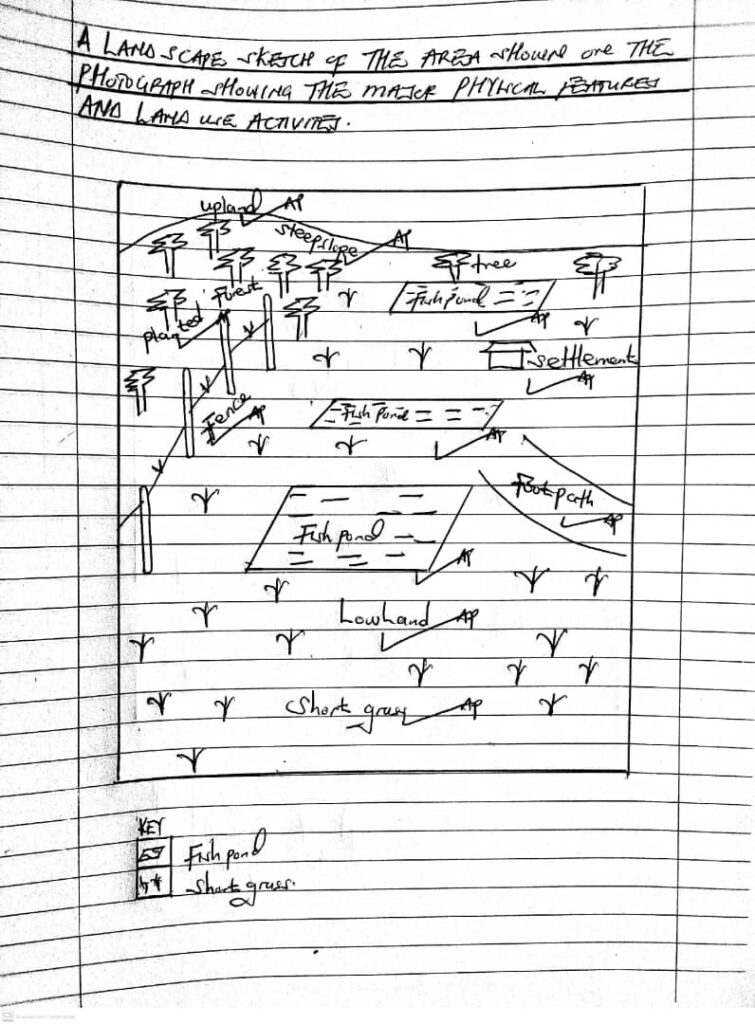 A LANDSCAPE SKETCH OF THE AREA SHOWN ONE THE
PHOTOGRAPH SHOWING THE MAJOR PHYSICAL FEATURES
AND LAND USE ACTIVITES.
upland AP
steepslope AP
tree
planted Forest AP
Fish pond
AP
settlement
AP
Fence AP
Fish pond
AP
Foot path
AP
Fish pond
AP
LowLand AP
Short grass AP
KEY
Fish pond
short grass.